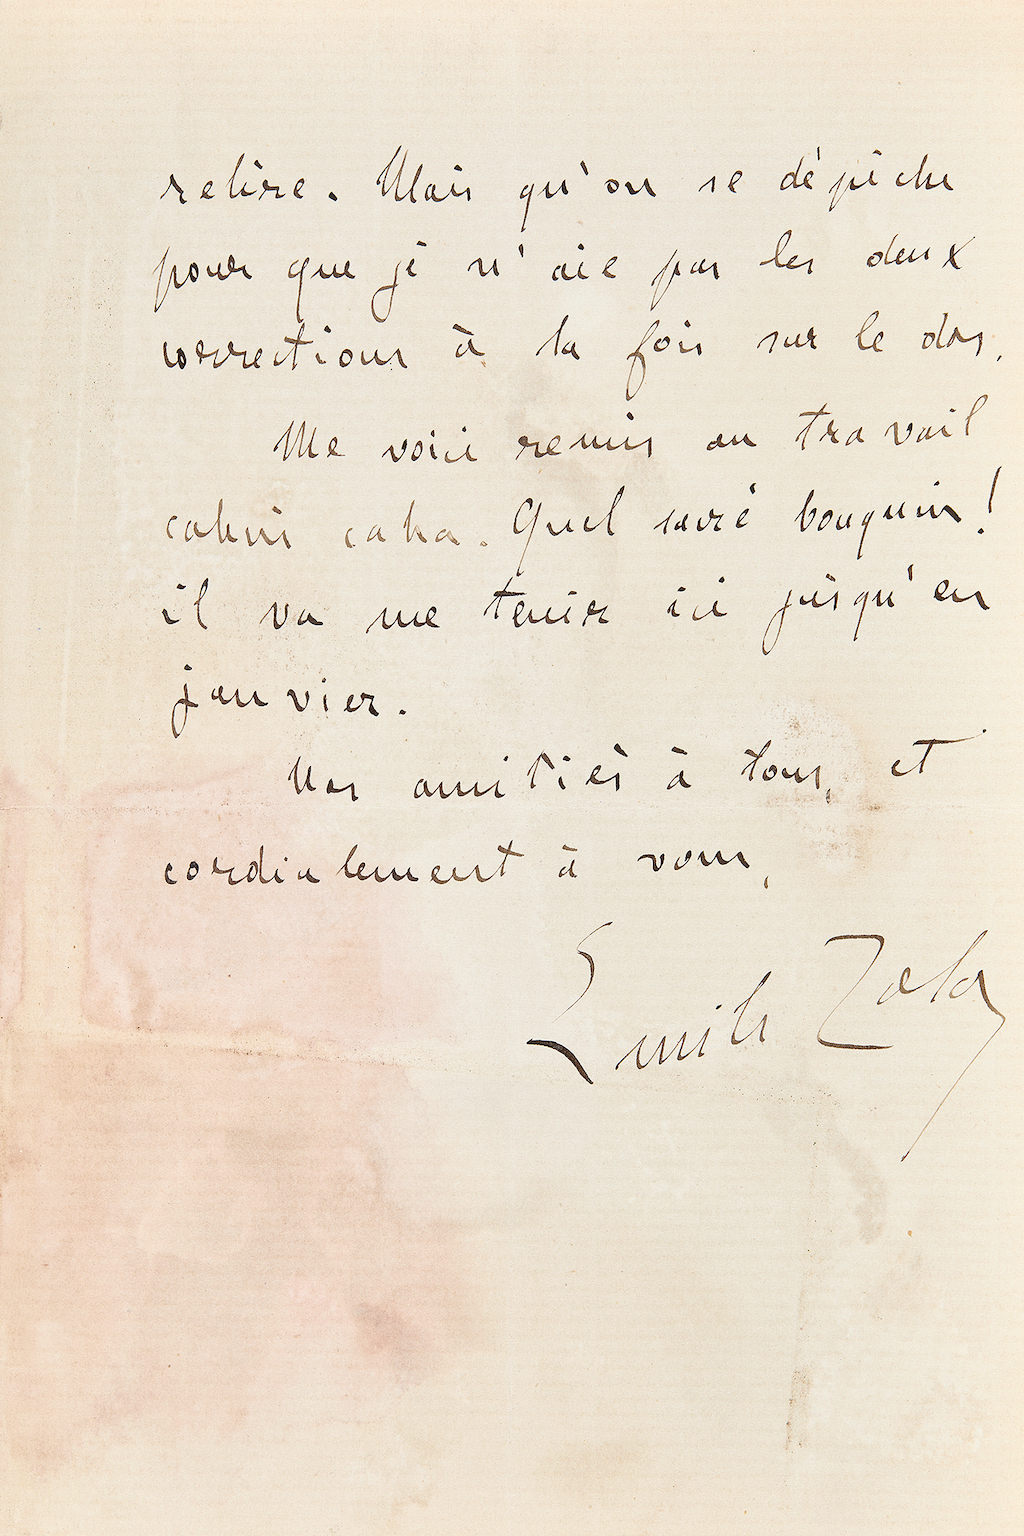 relire. Mais qu'on se dépêche
pour que je n'aie pas les deux
corrections à la fois sur le dos.
Me voici remis au travail
cahin caha. Quel sacré bouquin!
il va me tenir ici jusqu'en
janvier.
Nos amitiés à tous, et
cordialement à vous,
Emile Zola